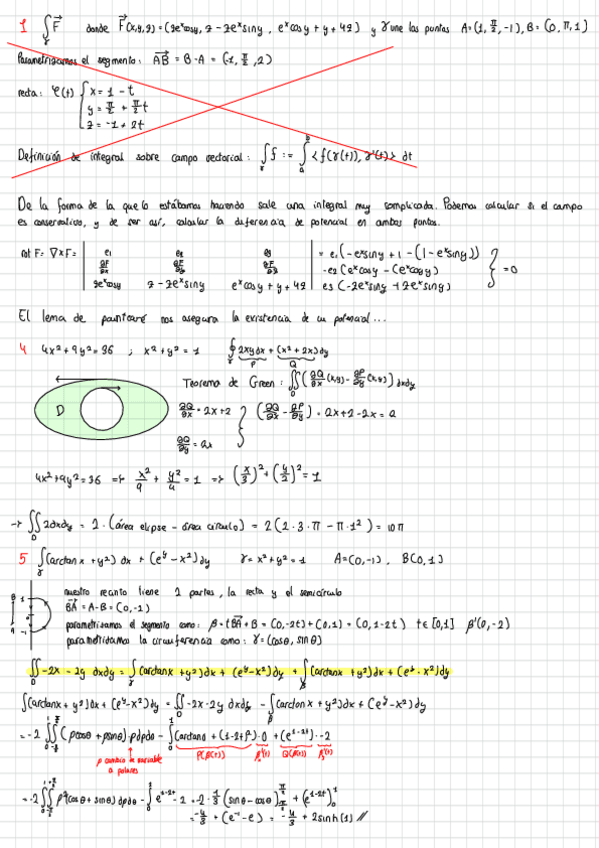 1 ∫_γ F⃗ donde F⃗(x,y,z) = (2e^x cosy, z - 2e^x siny, e^x cosy + y + 4z) y γ une los puntos A=(1, π/2, -1), B=(0, π, 1)
Parametrizamos el segmento: AB⃗ = B - A = (-1, π/2, 2)
recta: φ(t) { x = 1 - t
y = π/2 + π/2 t
z = -1 + 2t
Definición de integral sobre campo vectorial: ∫_γ f := ∫_a^b <f(γ(t)), γ'(t)> dt
De la forma de la que lo estábamos haciendo sale una integral muy complicada. Podemos calcular si el campo
es conservativo, y de ser así, calcular la diferencia de potencial en ambos puntos.
rot F = ∇×F = | e1 e2 e3 | = e1 (-e^x siny + 1 - (1 - e^x siny))
-e2 (e^x cosy - (e^x cosy) } = 0
2e^x cosy z - 2e^x siny e^x cosy + y + 4z e3 (-2e^x siny + 2e^x siny)
El lema de poincaré nos asegura la existencia de un potencial...
4 4x²+9y²=36 ; x²+y²=1 ∮_γ 2xy dx + (x²+2x) dy
P Q
Teorema de Green: ∬_D (∂Q/∂x (x,y) - ∂P/∂y (x,y)) dxdy
D
∂Q/∂x = 2x+2 } (∂Q/∂x - ∂P/∂y) = 2x+2-2x = 2
∂Q/∂y = 2x
4x²+9y²=36 => x²/9 + y²/4 = 1 => (x/3)² + (y/2)² = 1
→ ∬_D 2dxdy = 2·(área elipse - área círculo) = 2(2·3·π - π·1²) = 10π
5 ∫_γ (arctan x + y²) dx + (e^y - x²) dy γ = x²+y² = 1 A=(0,-1), B(0,1)
nuestro recinto tiene 2 partes, la recta y el semicírculo
B 1
A -1
BA⃗ = A - B = (0,-1)
parametrizamos el segmento como: β = tBA⃗ + B = (0,-2t) + (0,1) = (0,1-2t) t∈[0,1] β'(0,-2)
parametrizamos la circunferencia como: γ = (cosθ, sinθ)
∬_D -2x - 2y dxdy = ∫_γ (arctanx + y²) dx + (e^y - x²) dy + ∫_β (arctanx + y²) dx + (e^y - x²) dy
∫_γ (arctanx + y²) dx + (e^y - x²) dy = ∬_D -2x - 2y dxdy - ∫_β (arctan x + y²) dx + (e^y - x²) dy
= -2 ∫∫ (ρcosθ + ρsinθ)·ρ dρdθ - ∫_0^1 (arctan0 + (1-2t)²)·0 + (e^{1-2t})·-2
ρ cambio de variable P(β(t)) β'(t) Q(β(t)) β'(t)
a polares
= -2 ∫∫ ρ²(cosθ + sinθ) dρdθ - ∫_0^1 e^{1-2t} · -2 = -2·1/3 (sinθ - cosθ) + (e^{1-2t})_0^1
= -4/3 + (e^{-1} - e) = -4/3 + 2sinh(1) //